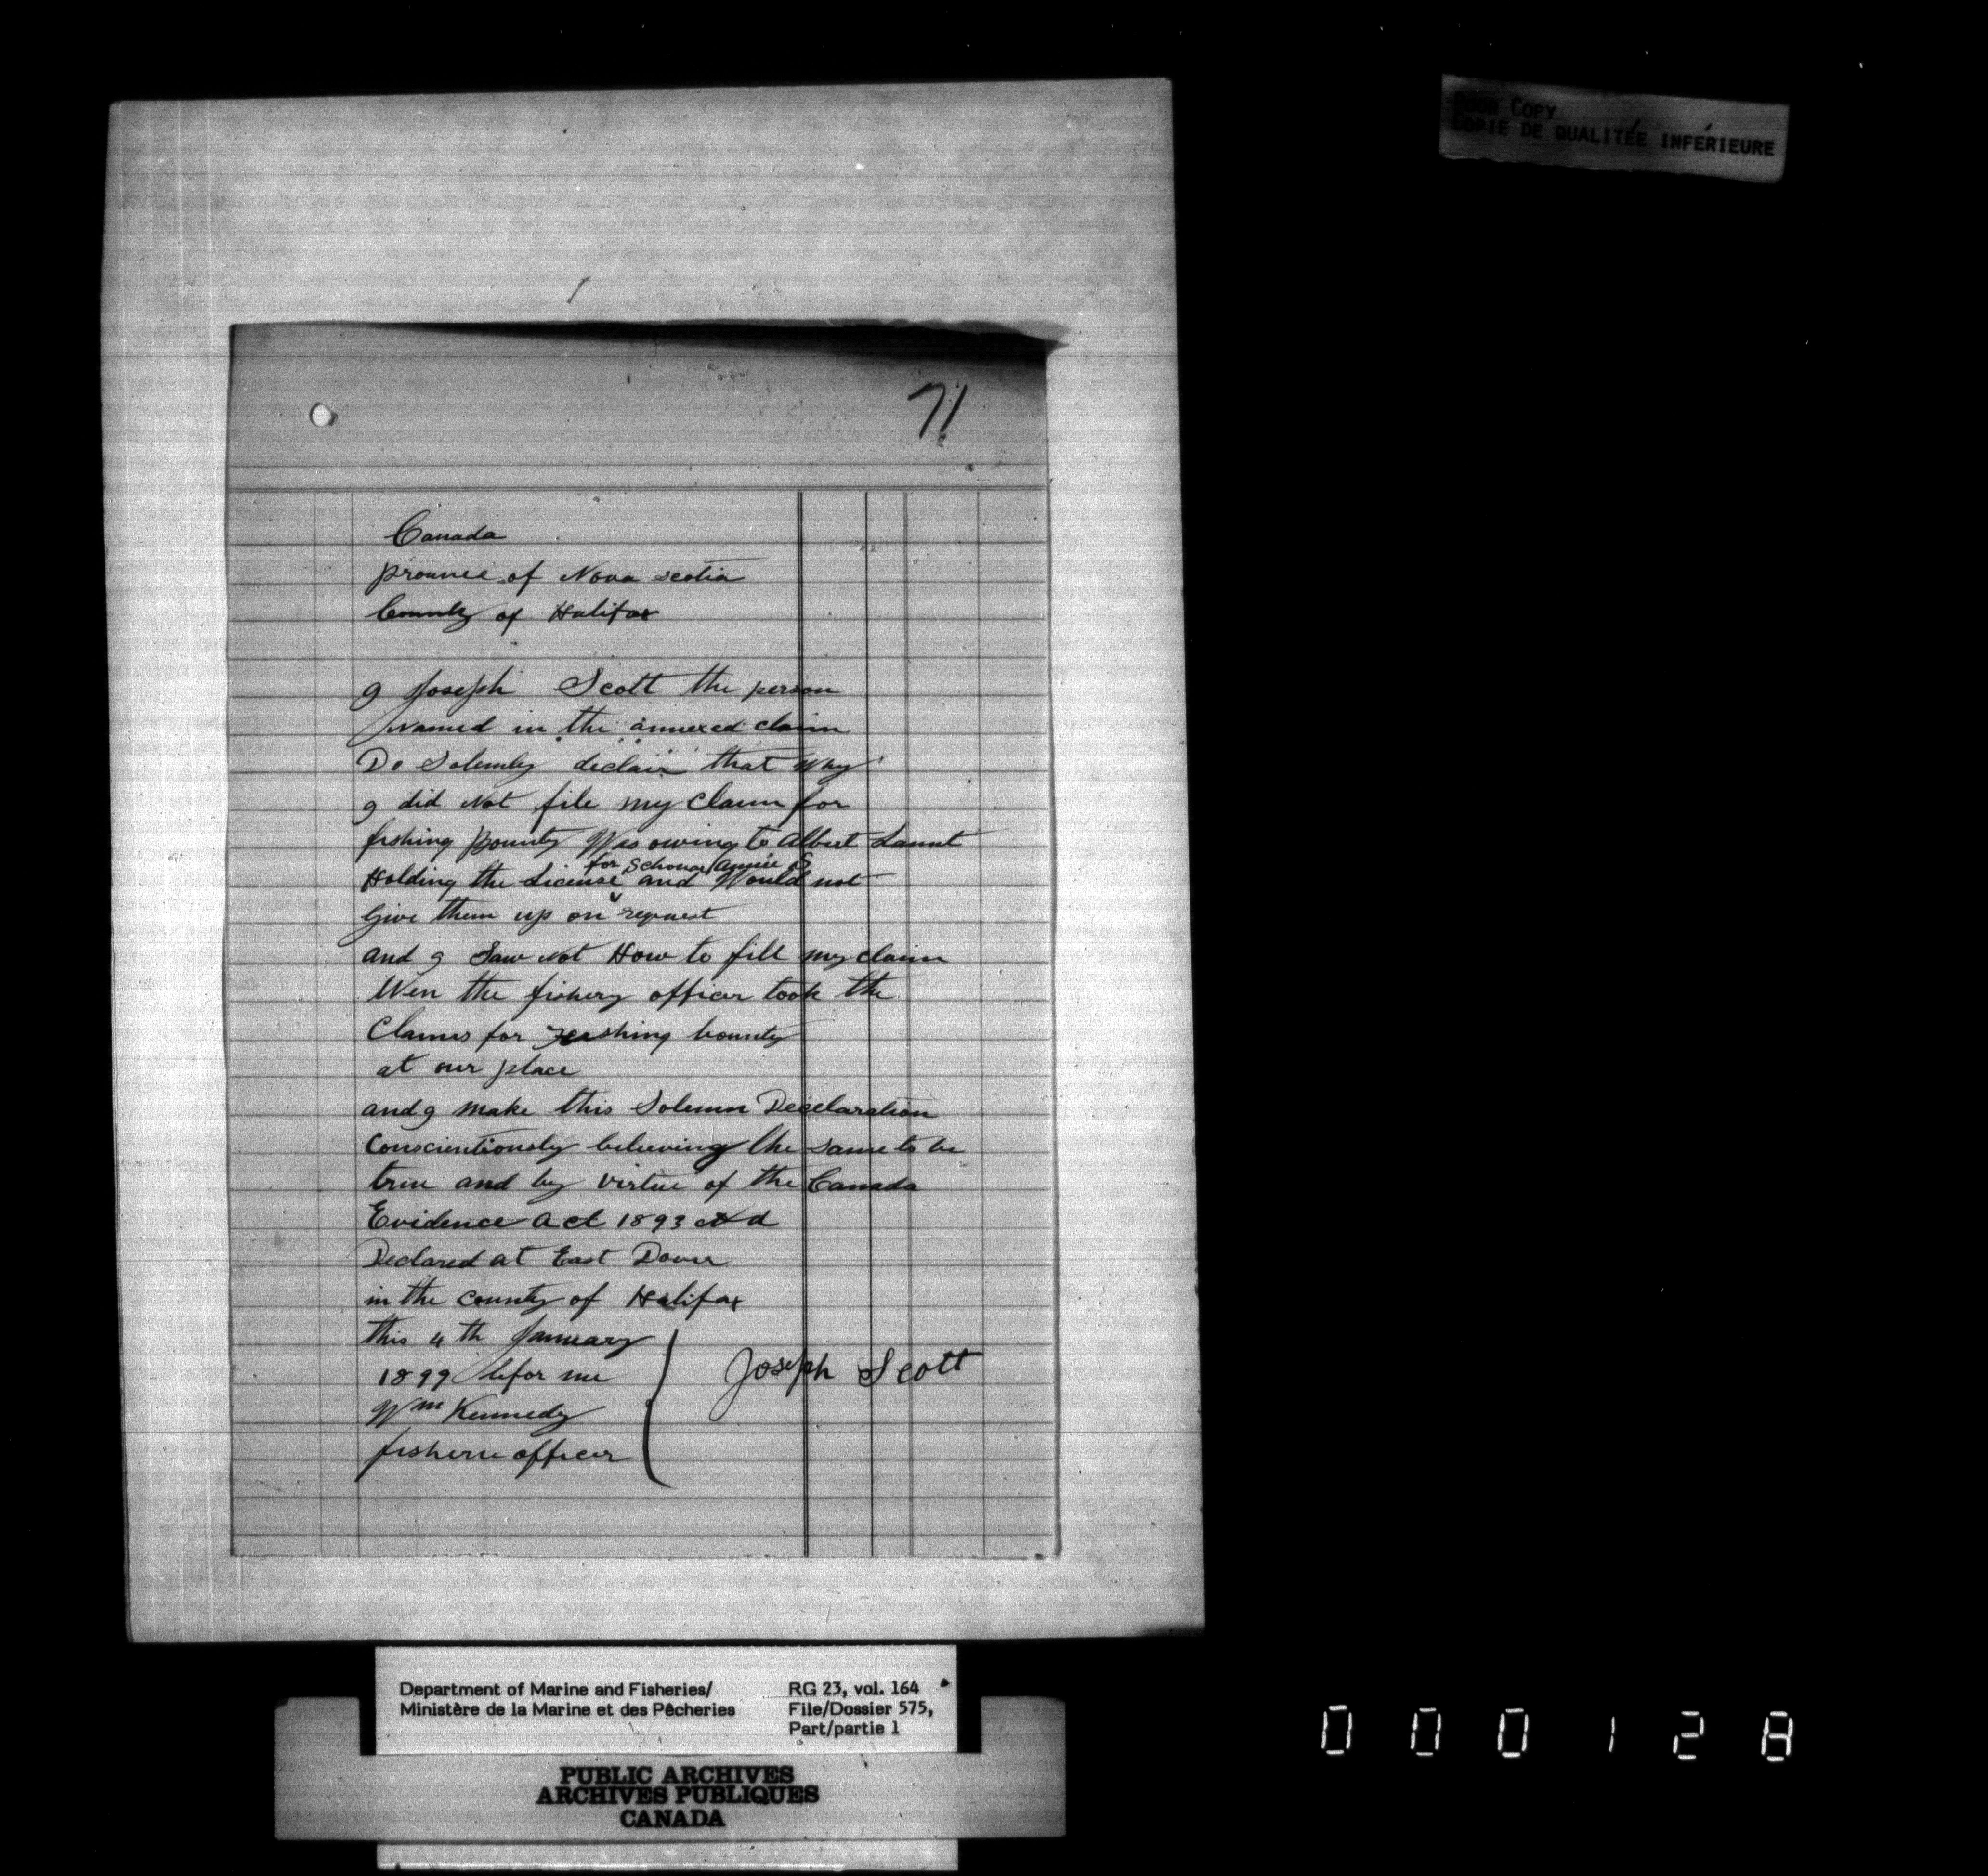 POOR COPY
COPIE DE QUALITÉE INFÉRIEURE
71
Canada
province of Nova scotia
County of Halifax
I Joseph Scott the person
Named in the annexed claim
Do Solemly declair that Why
I did Not file my Claim for
fishing Bounty Was owing to Albert
for Schonar Annie S
Holding the License and Would not
Give them up on request
and I Saw Not How to fill my claim
Wen the fishery officer took the
Clames for Feashing bounty
at our place
and I make this Solemn Decclaration
Conscientiously believing the same to be
true and by virtue of the Canada
Evidence act 1893
Declared at East Dover
in the county of Halifax
this 4 th January
1899 befor me
Joseph Scott
Wm Kennedy
fisherie officer
Department of Marine and Fisheries/
Ministère de la Marine et des Pêcheries
RG 23, vol. 164
File/Dossier 575,
Part/partie 1
PUBLIC ARCHIVES
ARCHIVES PUBLIQUES
CANADA
000128